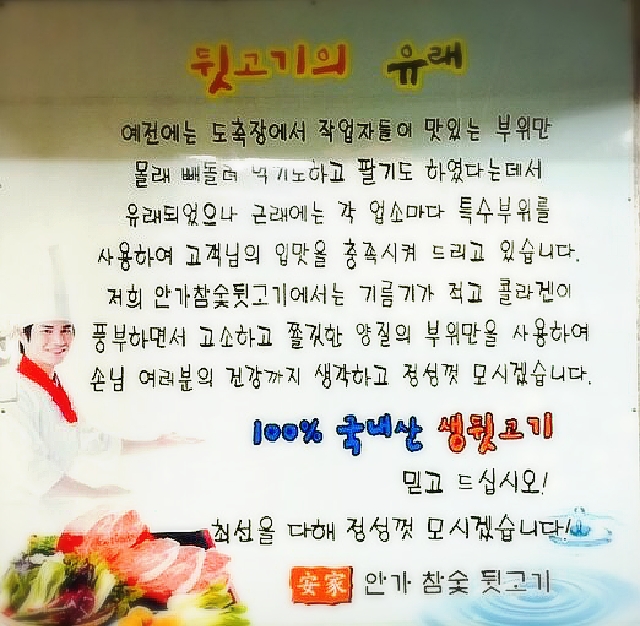 뒷고기의 유래
예전에는 도축장에서 작업자들이 맛있는 부위만
몰래 빼돌려 먹기도하고 팔기도 하였다는데서
유래되었으나 근래에는 각 업소마다 특수부위를
사용하여 고객님의 입맛을 충족시켜 드리고 있습니다.
저희 안가참숯뒷고기에서는 기름기가 적고 콜라겐이
풍부하면서 고소하고 쫄깃한 양질의 부위만을 사용하여
손님 여러분의 건강까지 생각하고 정성껏 모시겠습니다.
100% 국내산 생뒷고기
믿고 드십시오!
최선을 다해 정성껏 모시겠습니다!
安家 안가 참숯 뒷고기